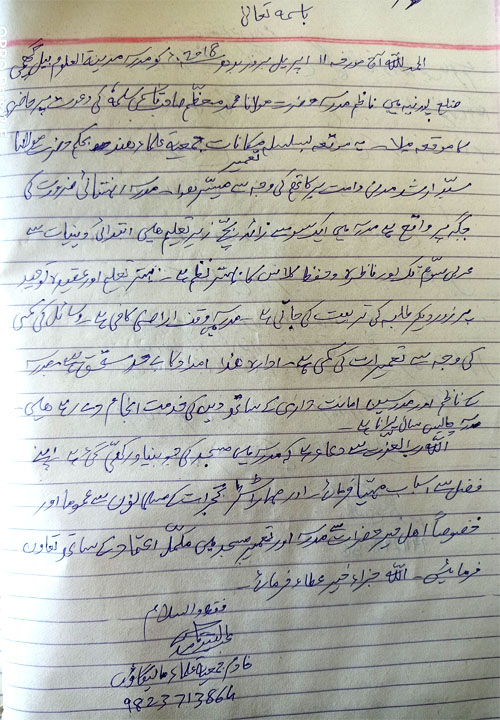 باسمہ تعالیٰ
الحمد للہ آج مورخہ ۱۱ اپریل بروز بدھ 2018ء کو مدرسہ مدینۃ العلوم بیل گچھی
ضلع پورنیہ میں ناظم مدرسہ حضرت مولانا محمد معظم صاحب قاسمی سلمہ کی دعوت پر حاضری
کا موقعہ ملا۔ یہ موقعہ بسلسلہ تعمیر مکانات جمعیۃ علماء ھند بحکم حضرت مولانا
سید ارشد مدنی دامت برکاتہم کی وجہ سے میسر ہوا۔ مدرسہ انتہائی ضرورت کی
جگہ پر واقع ہے مدرسہ میں ایک سو سے زائد بچے زیر تعلیم ھیں ابتدائی دینیات سے
عربی سوم تک اور ناظرہ و حفظ کلاس کا بہتر نظم ہے۔ بہتر تعلیم اور عقیدہ توحید
پر زور دیکر طلبہ کی تربیت کی جاتی ہے۔ مدرسہ میں وقف اراضی کافی ہے وسائل کی کمی
کی وجہ سے تعمیرات کی کمی ہے۔ ادارہ ھذا امداد کا بے حد مستحق ہے۔ مدرسہ
کے ناظم اور مدرسین امانت داری کے ساتھ دین کی خدمت انجام دے رہے ھیں
مدرسہ چالیس سال پرانا ہے۔
اللہ رب العزت سے دعاء ہے کہ مدرسہ میں مسجد کی جو بنیاد رکھی گئی ہے اپنے
فضل سے اسباب مہیا فرمائے۔ اور مہاراشٹرا گجرات کے مسلمانوں سے عموما اور
خصوصاً اھل خیر حضرات سے مدرسہ اور تعمیر مسجد میں مکمل اعتماد کے ساتھ تعاون
فرمائیں۔ اللہ جزاء خیر عطاء فرمائے۔
فقط والسلام
خادم جمعیۃ علماء مالیگاؤں
9823713864